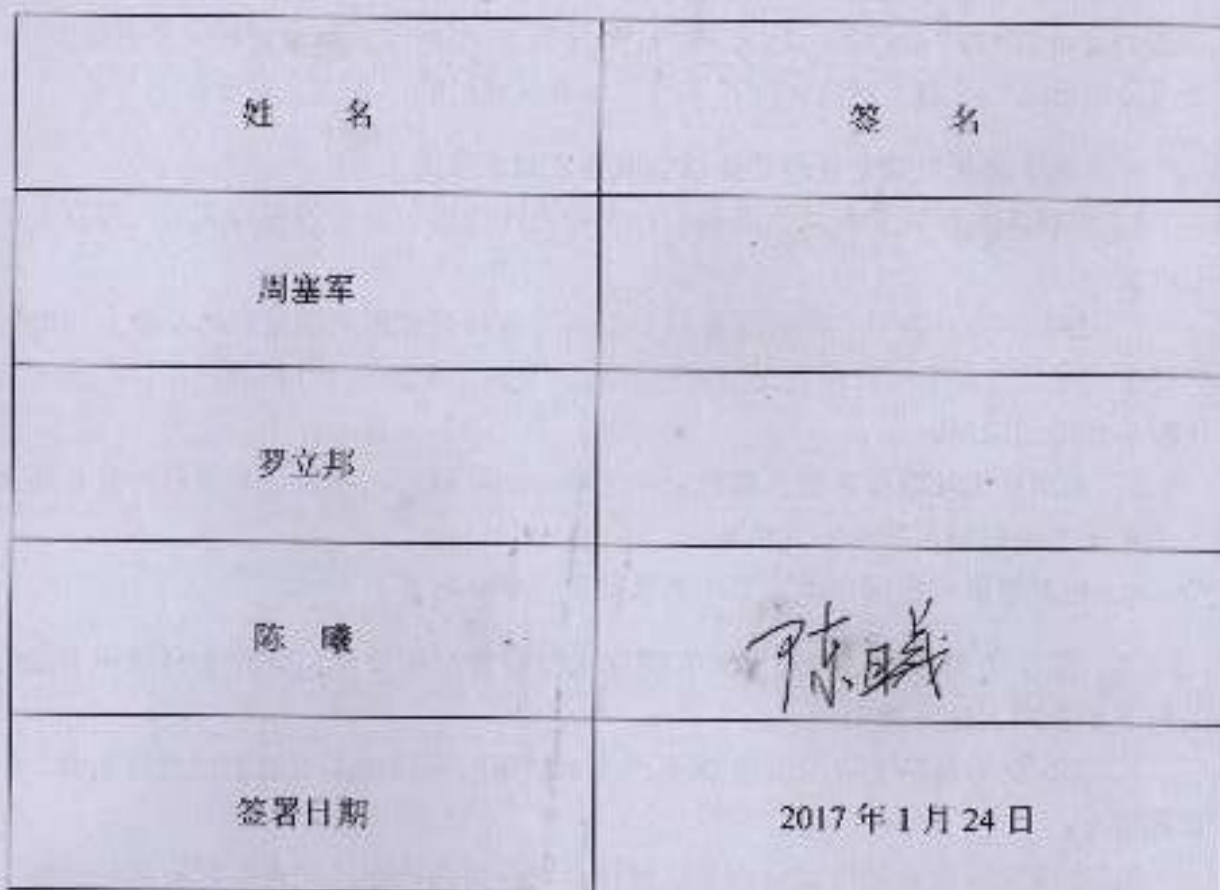 姓 名 签 名
周塞军
罗立邦
陈 曦 陈曦
签署日期 2017 年 1 月 24 日